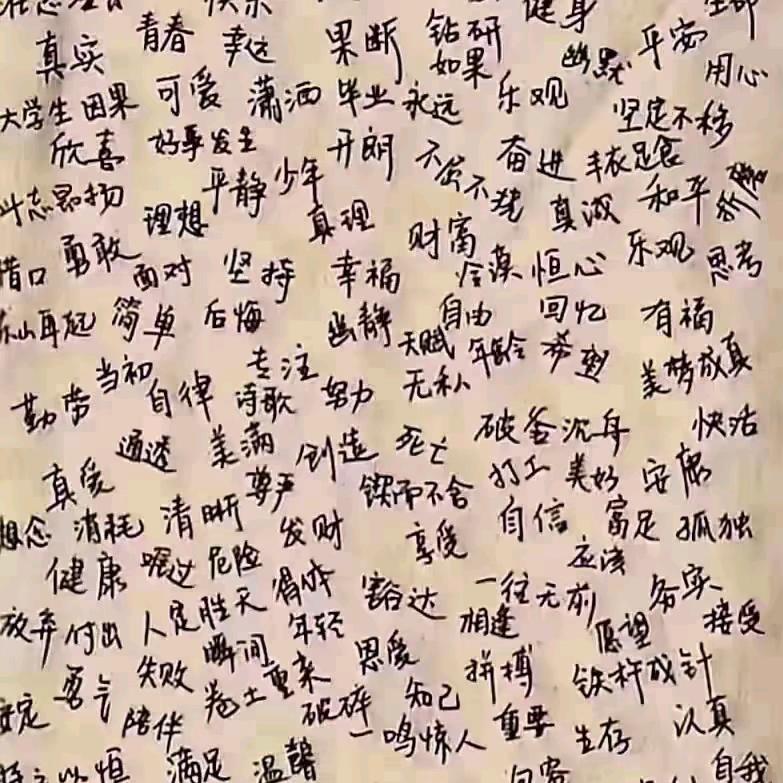 健身
真实 青春 幸运 果断 钻研 幽默 平安
如果 用心
大学生 因果 可爱 潇洒 毕业 永远 乐观 坚定不移
欣喜 好事发生 开朗 不屈不挠 奋进 丰衣足食
斗志昂扬 理想 平静 少年 真理 真诚 和平
借口 勇敢 面对 坚持 幸福 财富 冷漠 恒心 乐观 思考
东山再起 简单 后悔 幽静 自由 回忆 有福
勤劳 当初 自律 专注 天赋 年龄 希望 美梦成真
诗歌 努力 无私
通透 美满 创造 死亡 破釜沉舟 快活
真爱 尊严 锲而不舍 打工 美好 安康
想念 消耗 清晰 发财 享受 自信 富足 孤独
健康 嘱过 危险 得体 豁达 一往无前 应该 务实
放弃 付出 人定胜天 年轻 相逢 愿望 接受
勇气 失败 瞬间 恩爱 拼搏 铁杵成针
陪伴 卷土重来 破碎 知己 重要 生存 认真
一鸣惊人
持之以恒 满足 温馨 自我